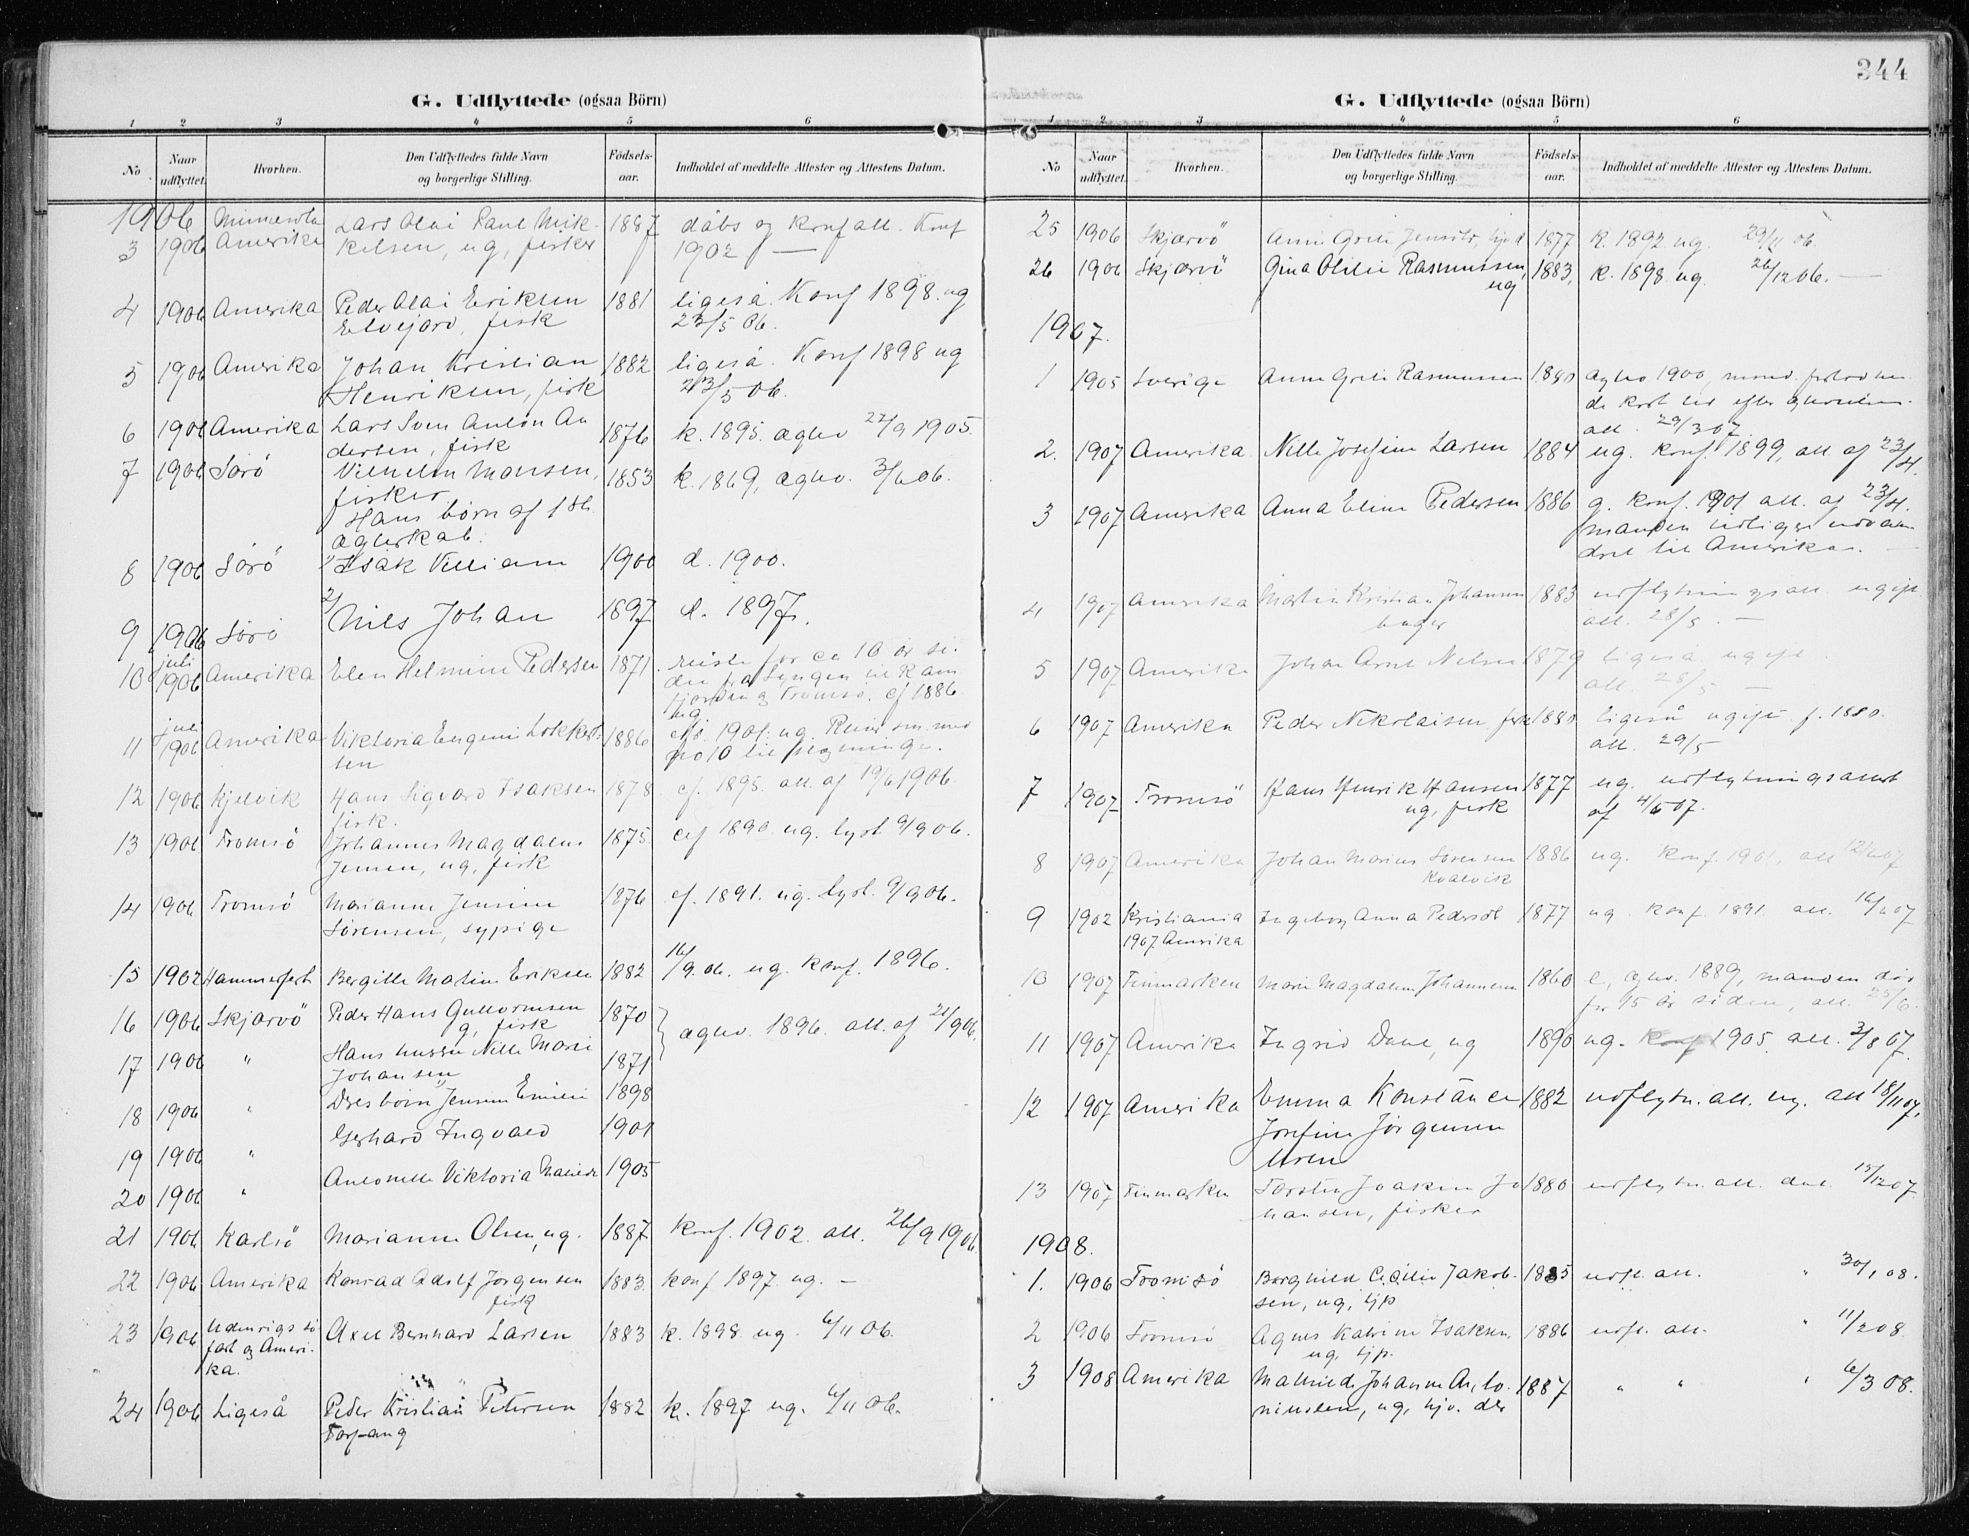 G. Udflyttede (ogsaa Börn)
1 2 3 4 5 6
No
Naar udflyttet.
Hvorhen.
Den Udflyttedes fulde Navn og borgerlige Stilling.
Födsels-aar.
Indholdet af meddelte Attester og Attestens Datum.
1906
3 1906 Minnesota Amerika Lars Olai Paul Mik- 1887 dåbs og konf att. Konf
kelsen, ug, fisker 1902 —
4 1906 Amerika Peder Olai Eriksen 1881 ligeså. Konf 1898. ug
Elvejord, fisk 23/5 06.
5 1906 Amerika Johan Kristian 1882 ligeså. Konf 1898 ug
Henriksen, fisk 23/5 06.
6 1906 Amerika Lars Sven Anton An 1876 k. 1895. ægtev 22/9 1905.
dersen, fisk
7 1906 Sørö Vilhelm Monsen, 1853 k. 1869, ægtev. 3/6 06.
fisker
Hans børn af 1ste
ægteskab.
8 1906 Sørö 1/ Isak Villiam 1900 d. 1900.
9 1906 Sørö 2/ Nils Johan 1897 d. 1897.
10 juli 1906 Amerika Elen Helmine Pedersen 1871. reiste for ca 10 år si-
den fra Lyngen til Ram
fjorden og Tromsø. cf 1886
ug.
11 juli 1906 Amerika Viktoria Eugenie 1886 cfs. 1901. ug. Reiser sm. med
sen no 10 til
12 1906 Kjelvik Hans Sigvard Isaksen 1878 cf. 1895. att. af 19/6 1906.
fisk.
13 1906 Tromsö Johannes Magdalus 1875 cf 1890. ug. lyst 9/9 06.
Jensen, ug, fisk
14 1906 Tromsö Marianne Jensine 1876 cf. 1891. ug. lyst. 9/9 06.
Sørensen, sypige
15 1902 Hammerfest Bergitte Matine Eriksen 1882 16/9.06. ug. konf. 1896.
16 1906 Skjærvö Peder Hans Guttormsen 1870 ægtev. 1896. att. af 21/9 06.
g, fisk
17 1906 " Hans hustru Nille Marie 1871
Johansen
18 1906 " Deres børn Jensine Emilie 1898
19 1906 " Gerhard Ingvald 1901
20 1906 " Antonette Viktoria 1905
21 1906 Karlsö Marianne Olsen, ug. 1887 Konf. 1902. att. 26/9 1906
22 1906 Amerika Konrad Adolf Jørgensen 1883. konf 1897. ug. —
fisk
23 1906 Udenrigs sö Axel Bernhard Larsen 1883 k. 1898. ug. 6/11 06.
fart og Ameri-
ka.
24 1906 Ligeså Peder Kristian Petersen 1882 k. 1897 ug. 6/11 06.
344
G. Udflyttede (ogsaa Börn)
1 2 3 4 5 6
No
Naar udflyttet.
Hvorhen.
Den Udflyttedes fulde Navn og borgerlige Stilling.
Födsels-aar.
Indholdet af meddelte Attester og Attestens Datum.
25 1906 Skjærvö Anne Grete 1877 k. 1892 ug. 29/11 06.
26 1906 Skjærvö Gina Otilie Rasmussen, 1883, k. 1898 ug. 26/12 06. —
ug
1907.
1 1905 Sverige Anne Grete Rasmussen 1880 ægtev 1900, mand. forlod hen-
de kort tid efter
att. 29/3 07.
2. 1907 Amerika Nille Josefine Larsen 1884 ug. konf. 1899, att. af 23/4.
3 1907 Amerika Anna Eline Pedersen 1886 g. konf. 1901 att. af 23/4.
manden tidligere udvan
dret til Amerika. —
4 1907 Amerika Martin Kristian Johannesen 1883 udflytningsatt. ugift
bager att. 28/5. —
5 1907 Amerika Johan Arnt Nilsen 1879 ligeså ugift
att. 28/5 —
6 1907 Amerika Peder Nikolaisen fisk 1880 ligeså ugift f. 1880.
att. 29/5
7 1907 Tromsö Hans Henrik Hansen 1877 ug. udflytningsattest
ug, fisk af 4/6 07.
8 1907 Amerika Johan Marius Sørensen 1886 ug. konf. 1901, att 12/6 07
Kvalvik
9 1902 Kristiania Ingeborg Anna Pedersdt 1877 ug. konf. 1891. att. 16/6 07
1907 Amerika
10 1907 Finmarken Marie Magdalena Johannesen 1860 e, ægtev. 1889, manden dø
for 15 år siden, att. 25/6.
11 1907 Amerika Ingrid ug 1890 ug. konf 1905. att. 3/8 07.
12 1907 Amerika Emma Konstance 1882 udflytn. att. ug. att 18/11 07.
Josefine Jørgensen
Uren
13 1907 Finmarken Torsten Joakim Jo 1880 udflytn. att. dat. 15/12 07.
hansen, fisker
1908.
1. 1906 Tromsö Borghild Cecilie Jakob- 1885 udfl. att. " 30/1 08.
sen, ug, tjp
2 1906 Tromsö Agnes Katrine Isaksen, 1886 udfl. att. " 11/2 08
ug, tjp.
3 1908 Amerika Mathilde Johanne Anto- 1887 " " " 6/3 08.
niusten, ug,